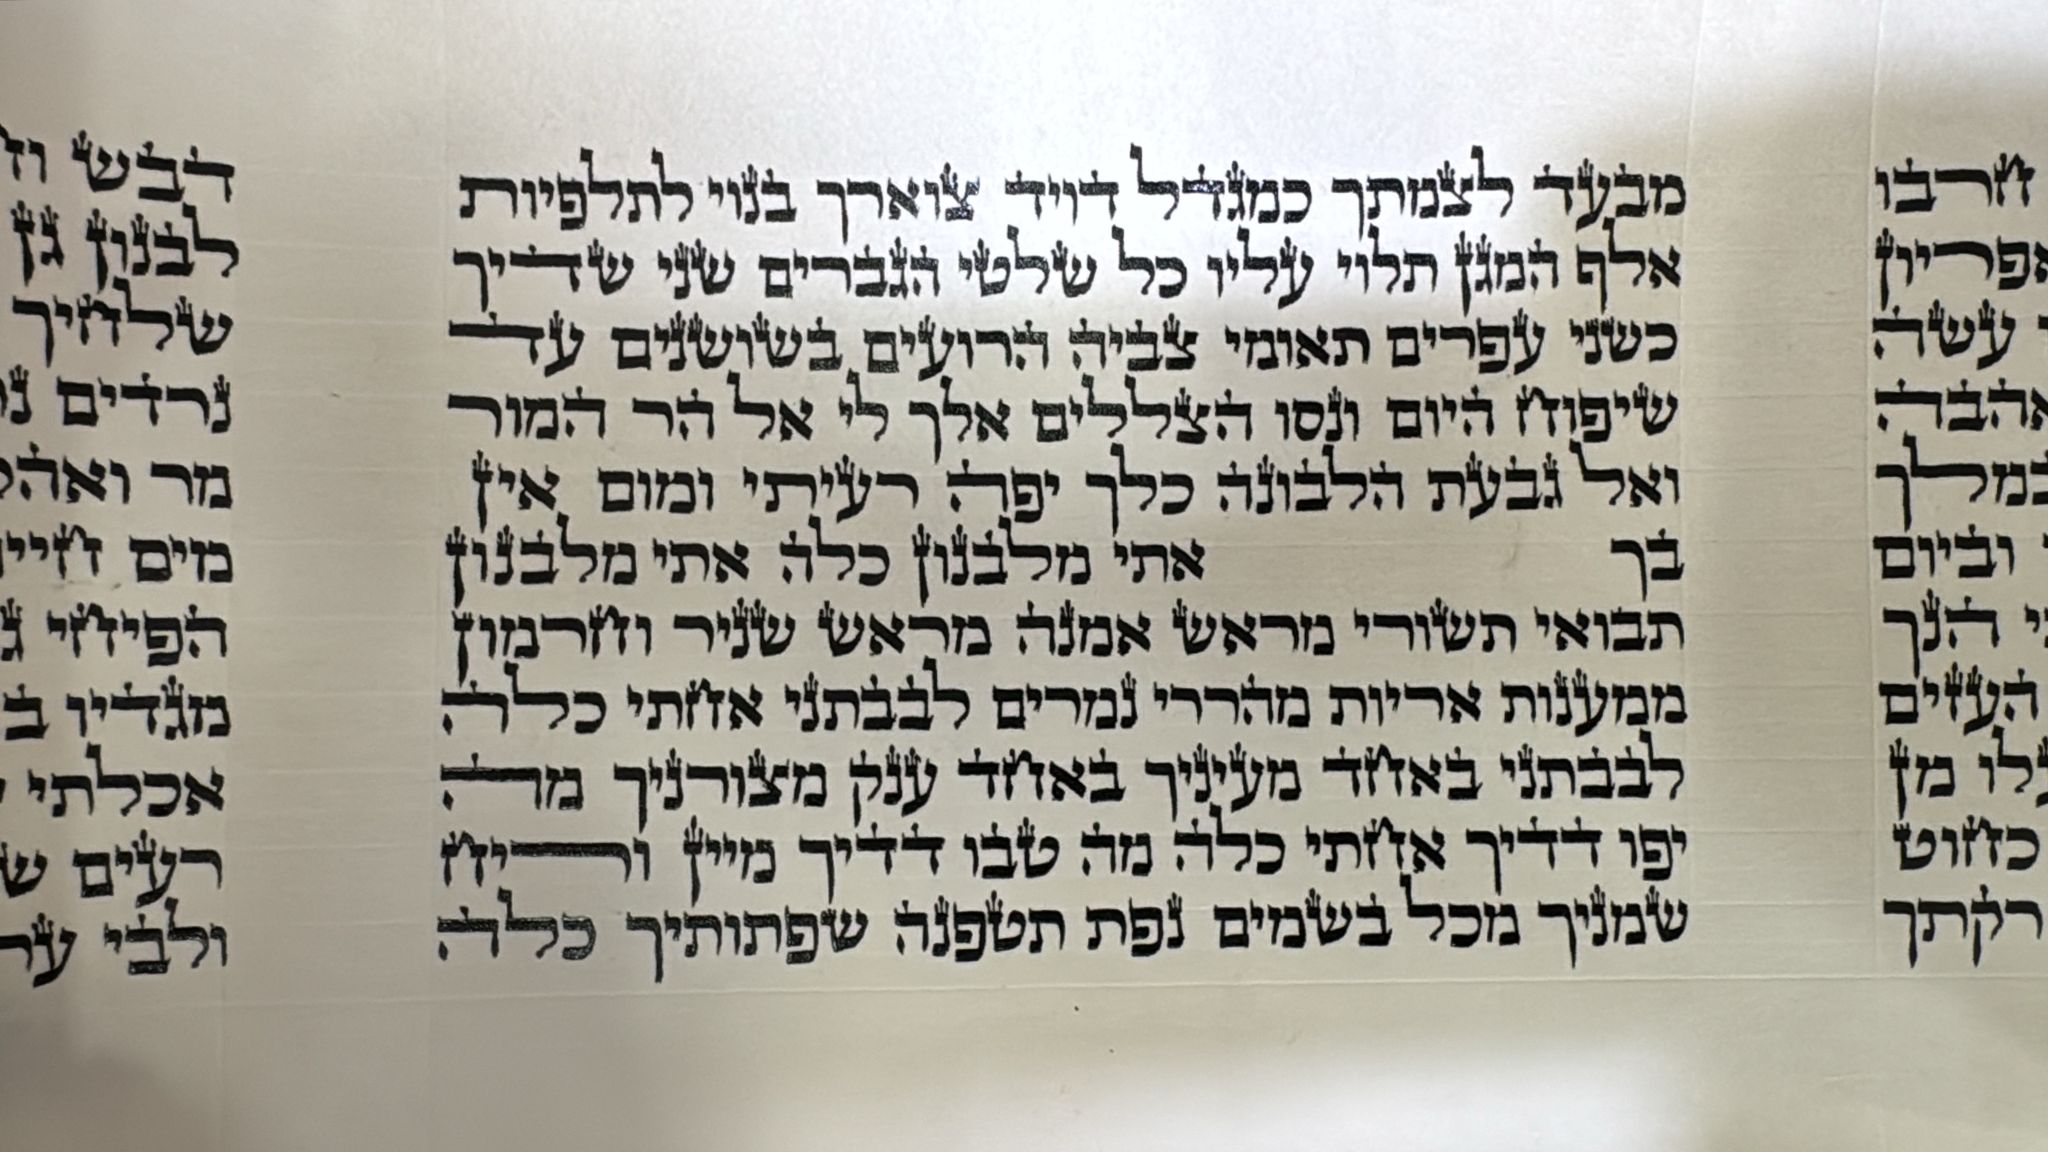 חרבו
אפריון
עשה
אהבה
במלך
וביום
הנך
העזים
מן
כחוט
רקתך
מבעד לצמתך כמגדל דויד צוארך בנוי לתלפיות
אלף המגן תלוי עליו כל שלטי הגברים שני שדיך
כשני עפרים תאומי צביה הרועים בשושנים עד
שיפוח היום ונסו הצללים אלך לי אל הר המור
ואל גבעת הלבונה כלך יפה רעיתי ומום אין
בך אתי מלבנון כלה אתי מלבנון
תבואי תשורי מראש אמנה מראש שניר וחרמון
ממענות אריות מהררי נמרים לבבתני אחתי כלה
לבבתני באחד מעיניך באחד ענק מצורניך מה
יפו דדיך אחתי כלה מה טבו דדיך מיין וריח
שמניך מכל בשמים נפת תטפנה שפתותיך כלה
דבש
לבנון גן
שלחיך
נרדים
מר
מים
הפיחי
מגדיו
אכלתי
רעים
ולבי ער